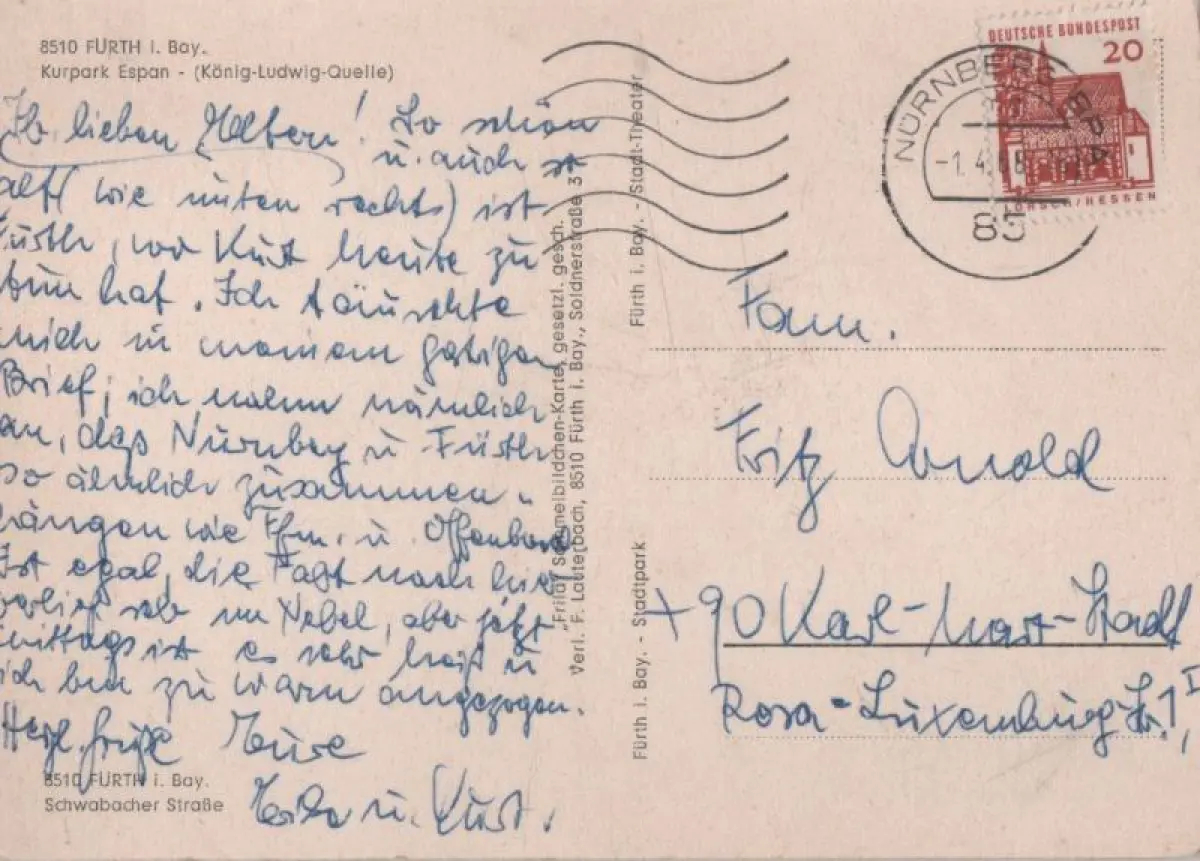 8510 FÜRTH i. Bay.
Kurpark Espan - (König-Ludwig-Quelle)
Ihr lieben Eltern! So schön
u. auch so
alt (wie unten rechts) ist
Fürth, wo Kurt heute zu
tun hat. Ich täuschte
mich in meinem gestrigen
Brief; ich nahm nämlich
an, dass Nürnberg u. Fürth
so ähnlich zusammen-
hängen wie Ffm. u. Offenbach
Ist egal, die Fahrt nach hier
verlief sehr im Nebel, aber jetzt
mittags ist es sehr heiß u
ich bin zu warm angezogen.
Herzl. Grüße Eure
u. Kurt.
8510 FÜRTH i. Bay.
Schwabacher Straße
"Frilu" Sammelbildchen-Karte, gesetzl. gesch.
Verl. F. Lauterbach, 8510 Fürth i. Bay., Soldnerstraße 3
Fürth i. Bay. - Stadt-Theater
Fürth i. Bay. - Stadtpark
DEUTSCHE BUNDESPOST
20
LORSCH/HESSEN
NÜRNBERG BPA 4
-1.4.68
85
Fam.
Fritz Arnold
x 90 Karl-Marx-Stadt
Rosa-Luxemburg-Str. 1, I